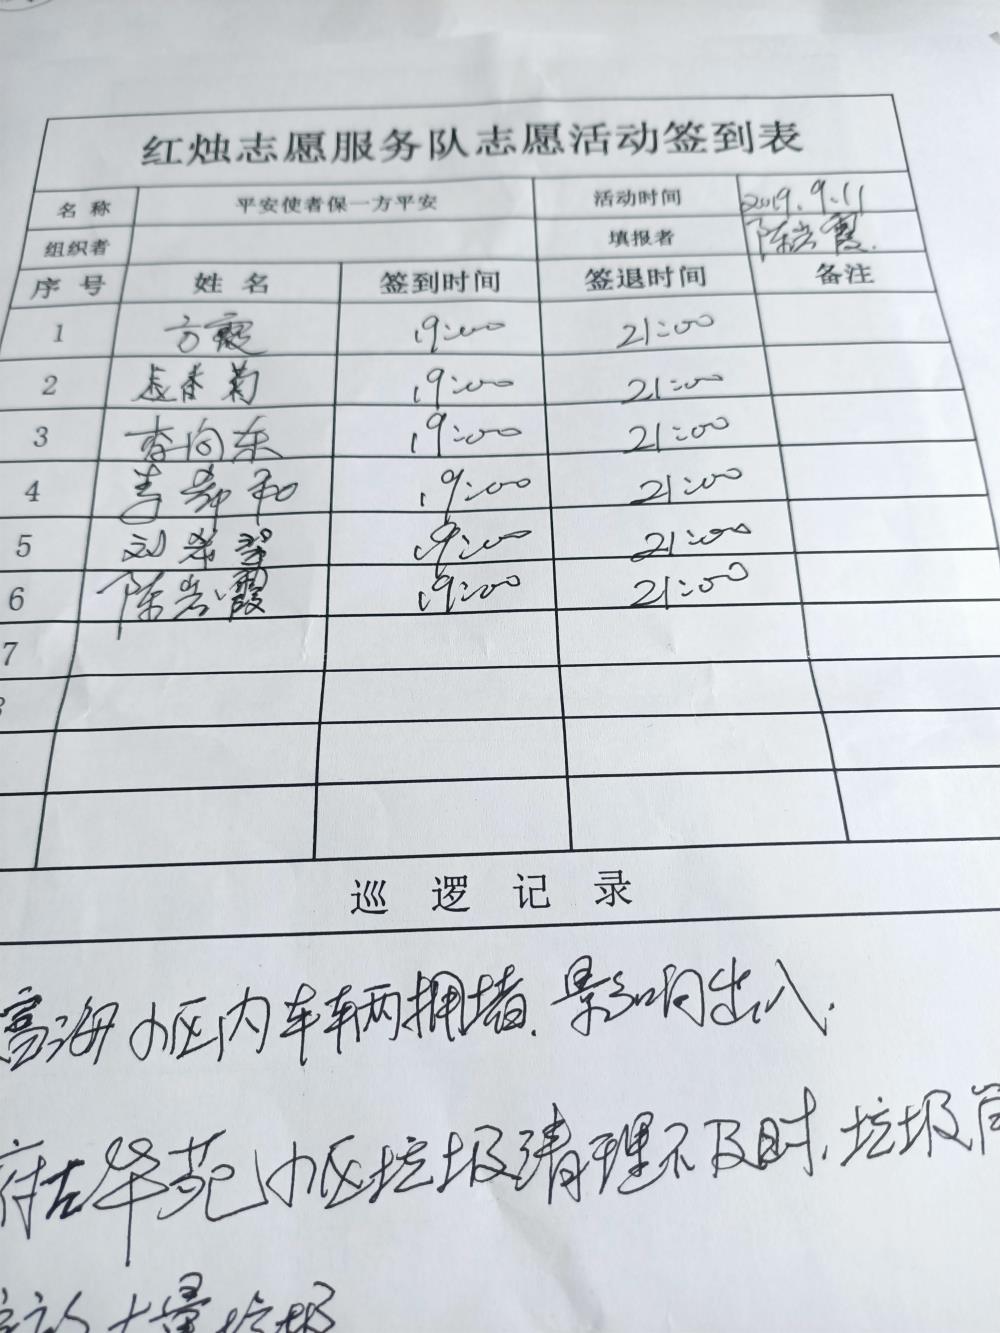 红烛志愿服务队志愿活动签到表
名 称 平安使者保一方平安 活动时间 2019.9.11
组织者 填报者 陈岩霞.
序 号 姓 名 签到时间 签退时间 备注
1 方霞 19:00 21:00
2 香菊 19:00 21:00
3 李向东 19:00 21:00
4 李 和 19:00 21:00
5 刘希望 19:00 21:00
6 陈岩霞 19:00 21:00
7
巡 逻 记 录
海小区内车辆拥堵.影响出入.
府右华苑小区垃圾清理不及时,垃圾
大量垃圾